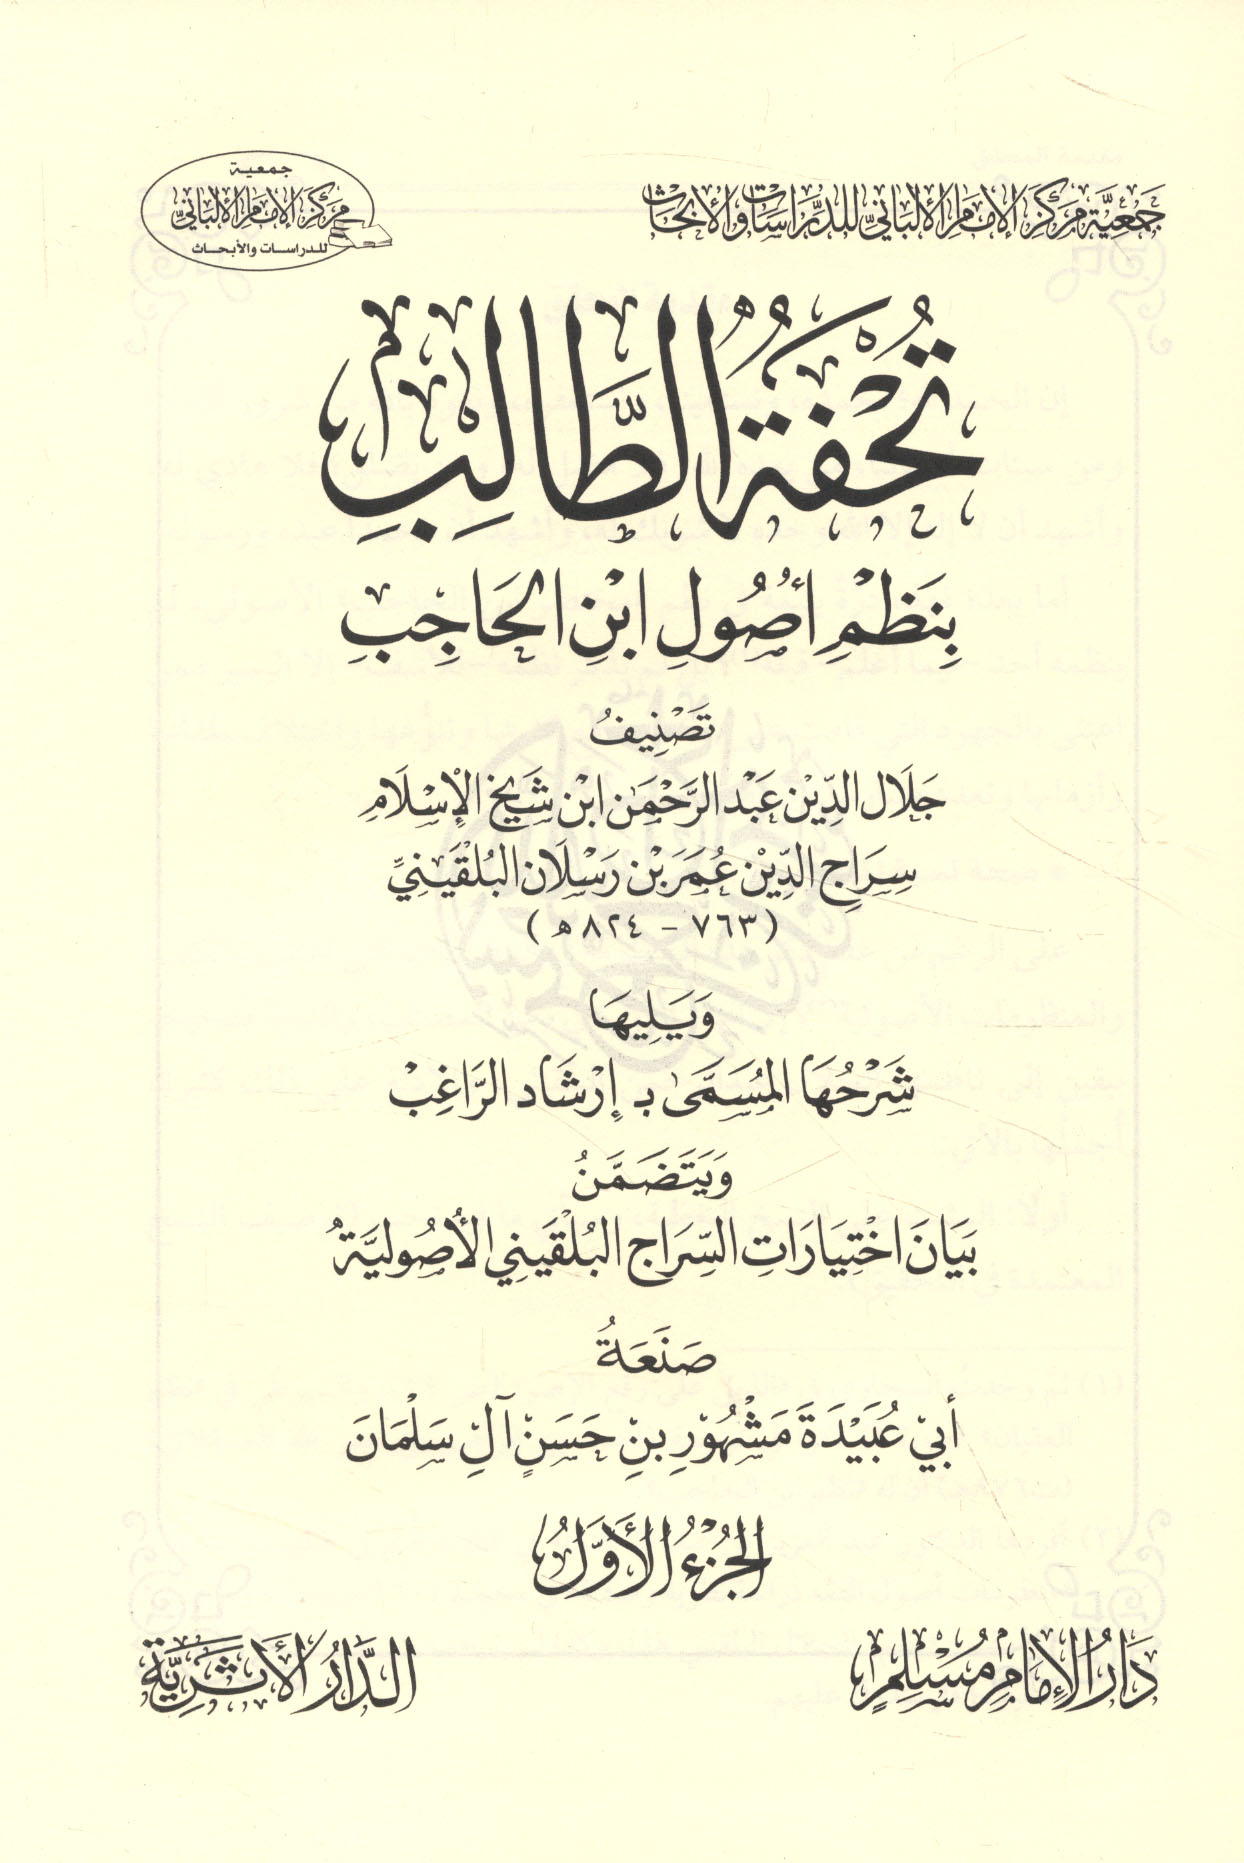 جَمْعِيَّة مَرْكَز الإِمَامِ الأَلْبَانِيِّ لِلدِّرَاسَاتِ وَالأَبْحَاثِ
جمعية
مركز الإمام الألباني
للدراسات والأبحاث
تُحْفَةُ الطَّالِبِ
بِنَظْمِ أُصُولِ ابْنِ الحَاجِبِ
تَصْنِيفُ
جَلَال الدِّيْن عَبْد الرَّحْمَن ابْن شَيْخ الإِسْلَامِ
سِرَاجِ الدِّيْن عُمَر بْن رَسْلَان البُلْقَيْنِيِّ
(٧٦٣ - ٨٢٤ هـ)
وَيَلِيهَا
شَرْحُهَا المُسَمَّى بـ إِرْشَاد الرَّاغِبْ
وَيَتَضَمَّنُ
بَيَانَ اخْتِيَارَاتِ السِّرَاج البُلْقَيْنِي الأُصُوليَّةُ
صَنَعَةُ
أَبِيْ عُبَيْدَةَ مَشْهُوْرِ بْنِ حَسَنٍ آلِ سَلْمَانَ
الجُزْءُ الأَوَّلُ
دَارُ الإِمَامِ مُسْلِمٍ
الدَّارُ الأَثَرِيَّة